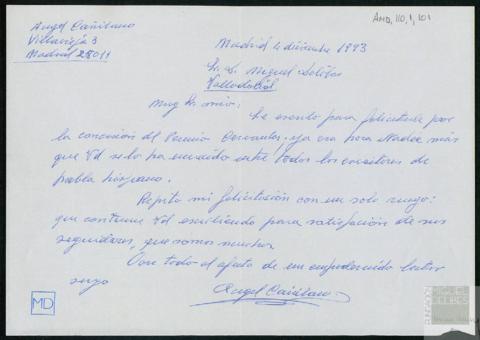 Angel Cañibano
Villavieja 3
Madrid 28011
AMD, 110, 1, 101
Madrid 4 diciembre 1993
Sr. D. Miguel Delibes
Valladolid
Muy Sr. mio:
Le escribo para felicitarle por
la concesión del Premio Cervantes. ya era hora Nadie más
que Vd se lo ha merecido entre todos los escritores de
habla hispana.
Repito mi felicitación con un solo ruego:
que continue Vd escribiendo para satisfacción de sus
seguidores, que somos muchos
Con todo el afecto de un empedernido lector
suyo
Angel Cañibano
MD
FUNDACIÓN
MIGUEL
DELIBES